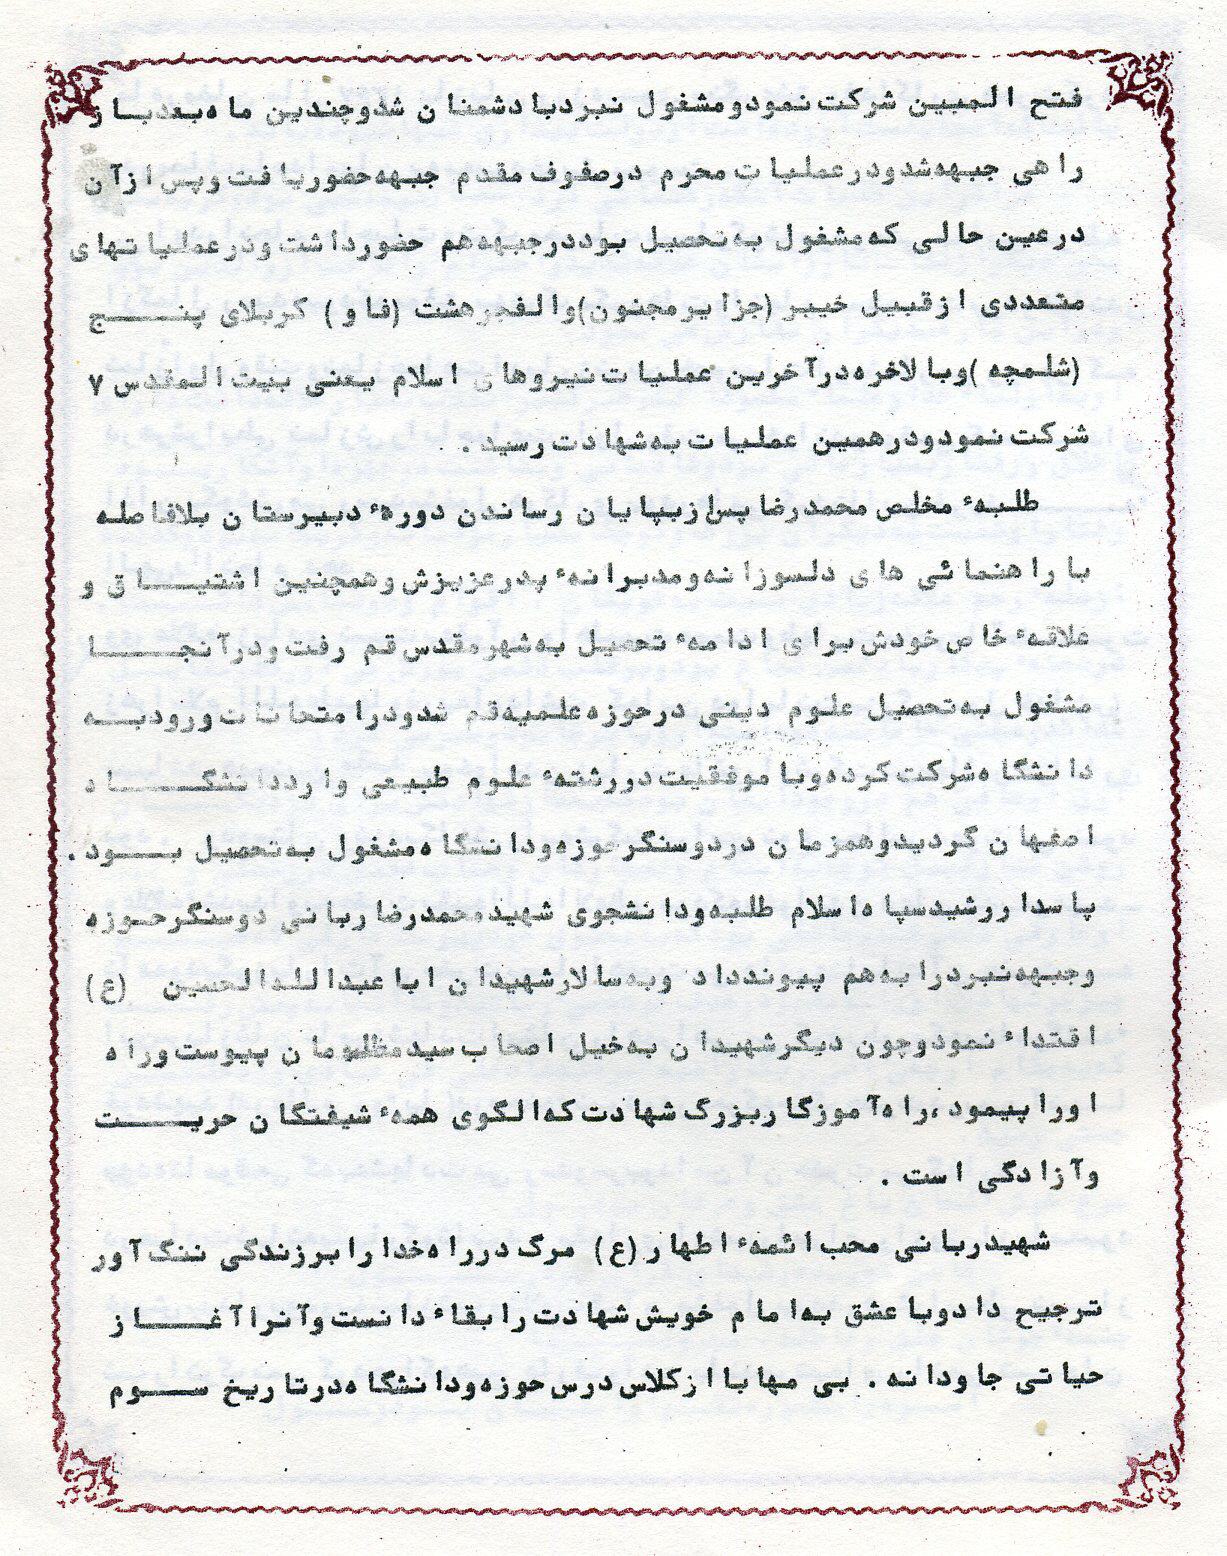 فتح المبین شرکت نمود و مشغول نبرد با دشمنان شد و چندین ماه بعد باز
راهی جبهه شد و در عملیات محرم در صفوف مقدم جبهه حضور یافت و پس از آن
در عین حالی که مشغول به تحصیل بود در جبهه هم حضور داشت و در عملیاتهای
متعددی از قبیل خیبر (جزایر مجنون) والفجر هشت (فاو) کربلای پنج
(شلمچه) و بالاخره در آخرین عملیات نیروهای اسلام یعنی بیت المقدس ۷
شرکت نمود و در همین عملیات به شهادت رسید .
طلبهء مخلص محمدرضا پس از بپایان رساندن دورهء دبیرستان بلافاصله
با راهنمائی های دلسوزانه و مدبرانهء پدر عزیزش و همچنین اشتیاق و
علاقهء خاص خودش برای ادامهء تحصیل به شهر مقدس قم رفت و در آنجا
مشغول به تحصیل علوم دینی در حوزه علمیه قم شد و در امتحانات ورود به
دانشگاه شرکت کرده و با موفقیت در رشتهء علوم طبیعی وارد دانشگاه
اصفهان گردید و همزمان در دو سنگر حوزه و دانشگاه مشغول به تحصیل بود .
پاسدار رشید سپاه اسلام طلبه و دانشجوی شهید محمدرضا ربانی دو سنگر حوزه
و جبهه نبرد را به هم پیوند داد و به سالار شهیدان ابا عبدالله الحسین (ع)
اقتداء نمود و چون دیگر شهیدان به خیل اصحاب سید مظلومان پیوست و راه
او را پیمود ، راه آموزگار بزرگ شهادت که الگوی همهء شیفتگان حریت
و آزادگی است .
شهید ربانی محب ائمهء اطهار (ع) مرگ در راه خدا را بر زندگی ننگ آور
ترجیح داد و با عشق به امام خویش شهادت را بقاء دانست و آنرا آغاز
حیاتی جاودانه . بی مهابا از کلاس درس حوزه و دانشگاه در تاریخ سوم